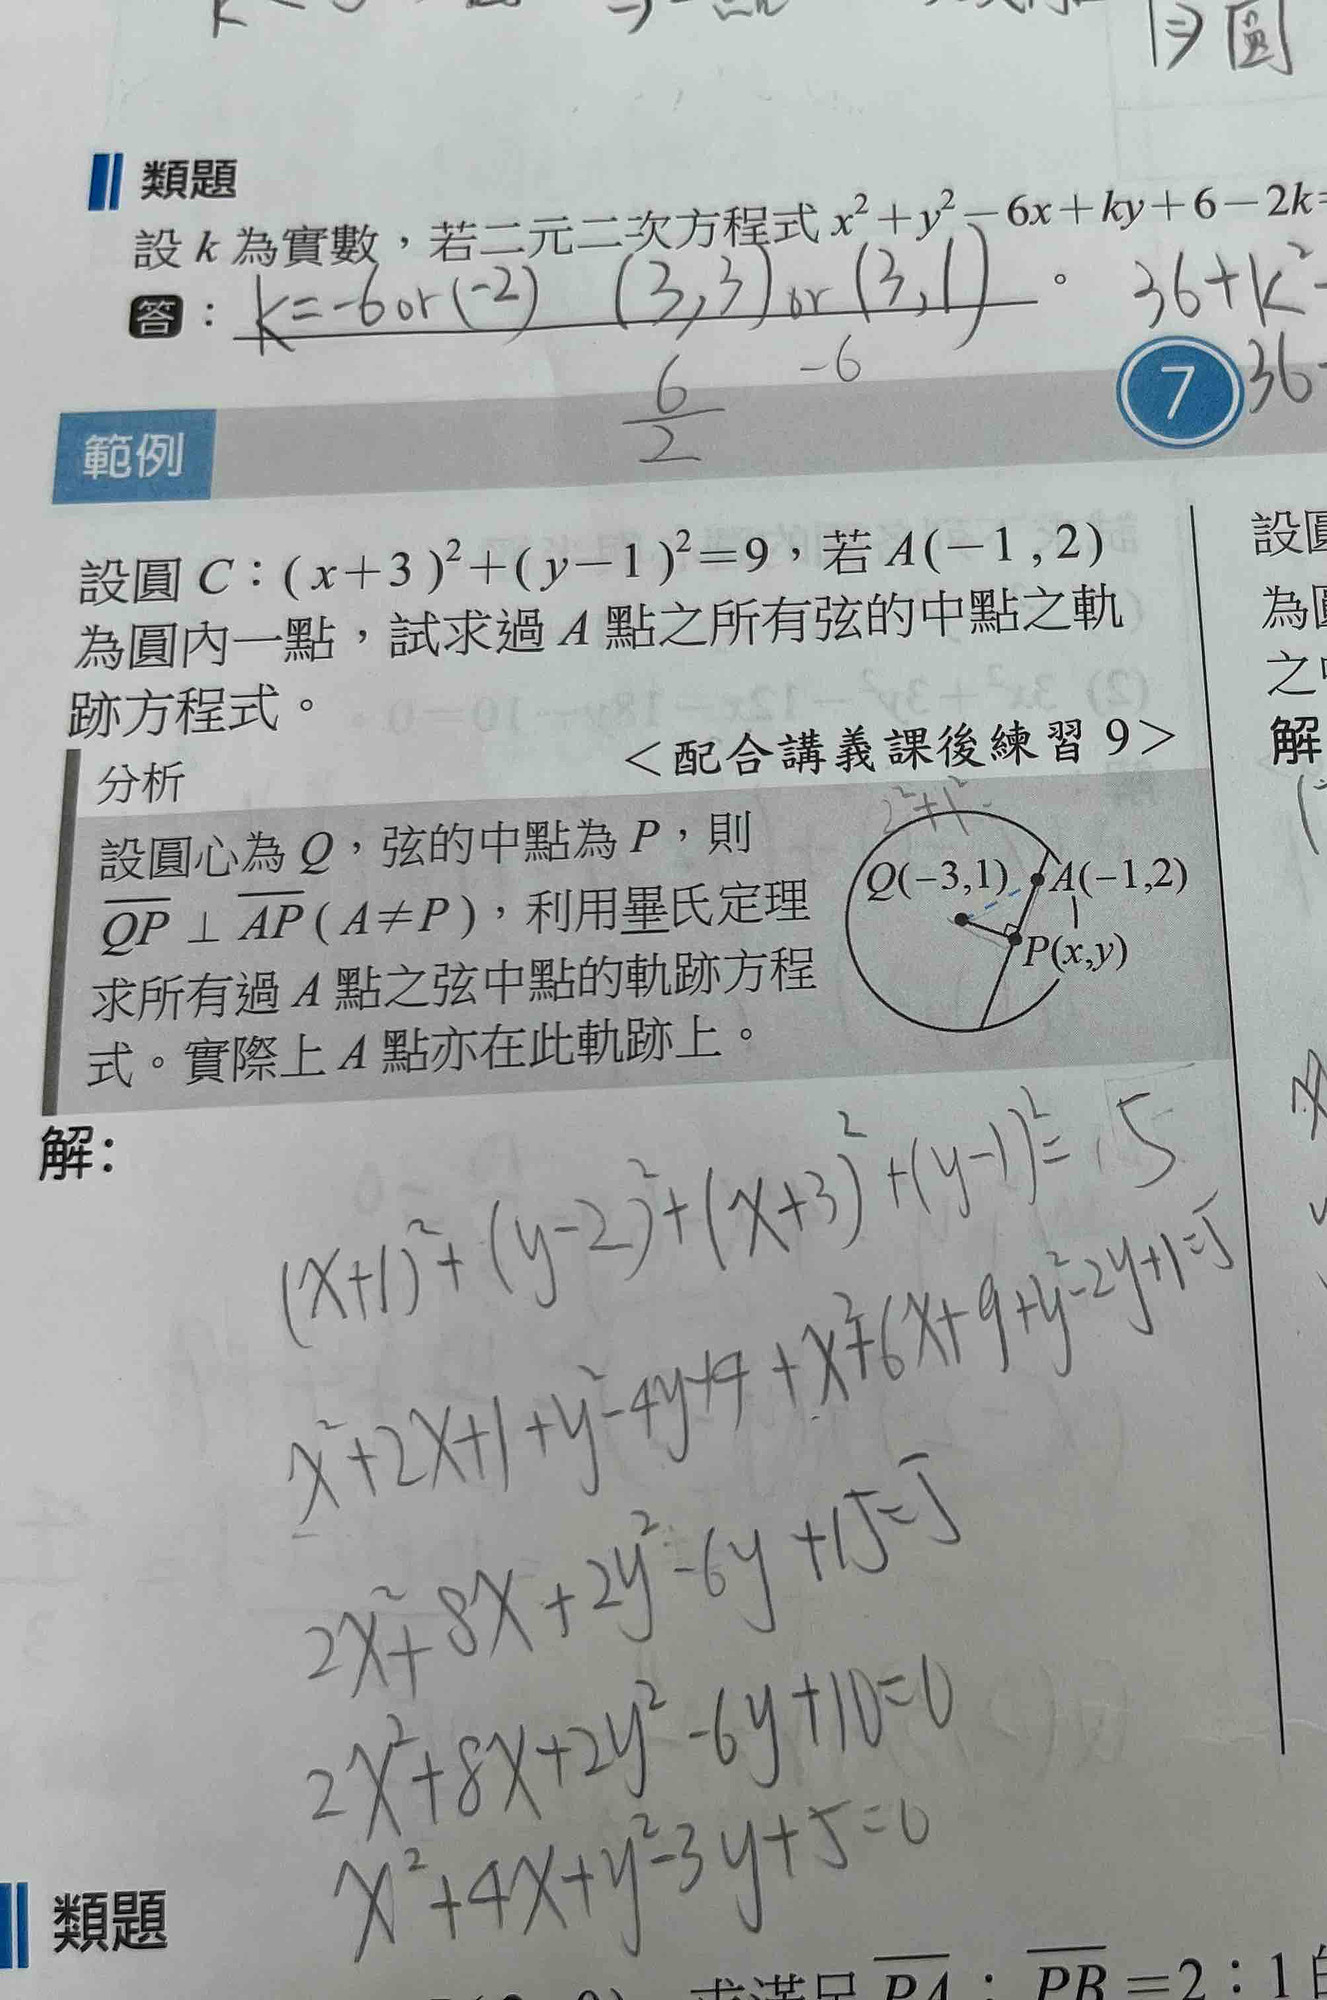 ⇒圓
類題
設 k 為實數，若二元二次方程式 x²+y²-6x+ky+6-2k=
答：k=-6or(-2) (3,3)or(3,1)。 36+k²-
6/2 -6 36-
範例 7
設圓 C：(x+3)²+(y-1)²=9，若 A(-1,2)
為圓內一點，試求過 A 點之所有弦的中點之軌
跡方程式。
<配合講義課後練習 9>
分析
設圓心為 Q，弦的中點為 P，則
QP ⊥ AP (A≠P)，利用畢氏定理
求所有過 A 點之弦中點的軌跡方程
式。實際上 A 點亦在此軌跡上。
2²+1²
Q(-3,1) A(-1,2)
P(x,y)
解：
(x+1)²+(y-2)²+(x+3)²+(y-1)²=5
x²+2x+1+y²-4y+4+x²+6x+9+y²-2y+1=5
2x²+8x+2y²-6y+15=5
2x²+8x+2y²-6y+10=0
x²+4x+y²-3y+5=0
設圓
為圓
之中
解
類題
求滿足 PA：PB=2：1的